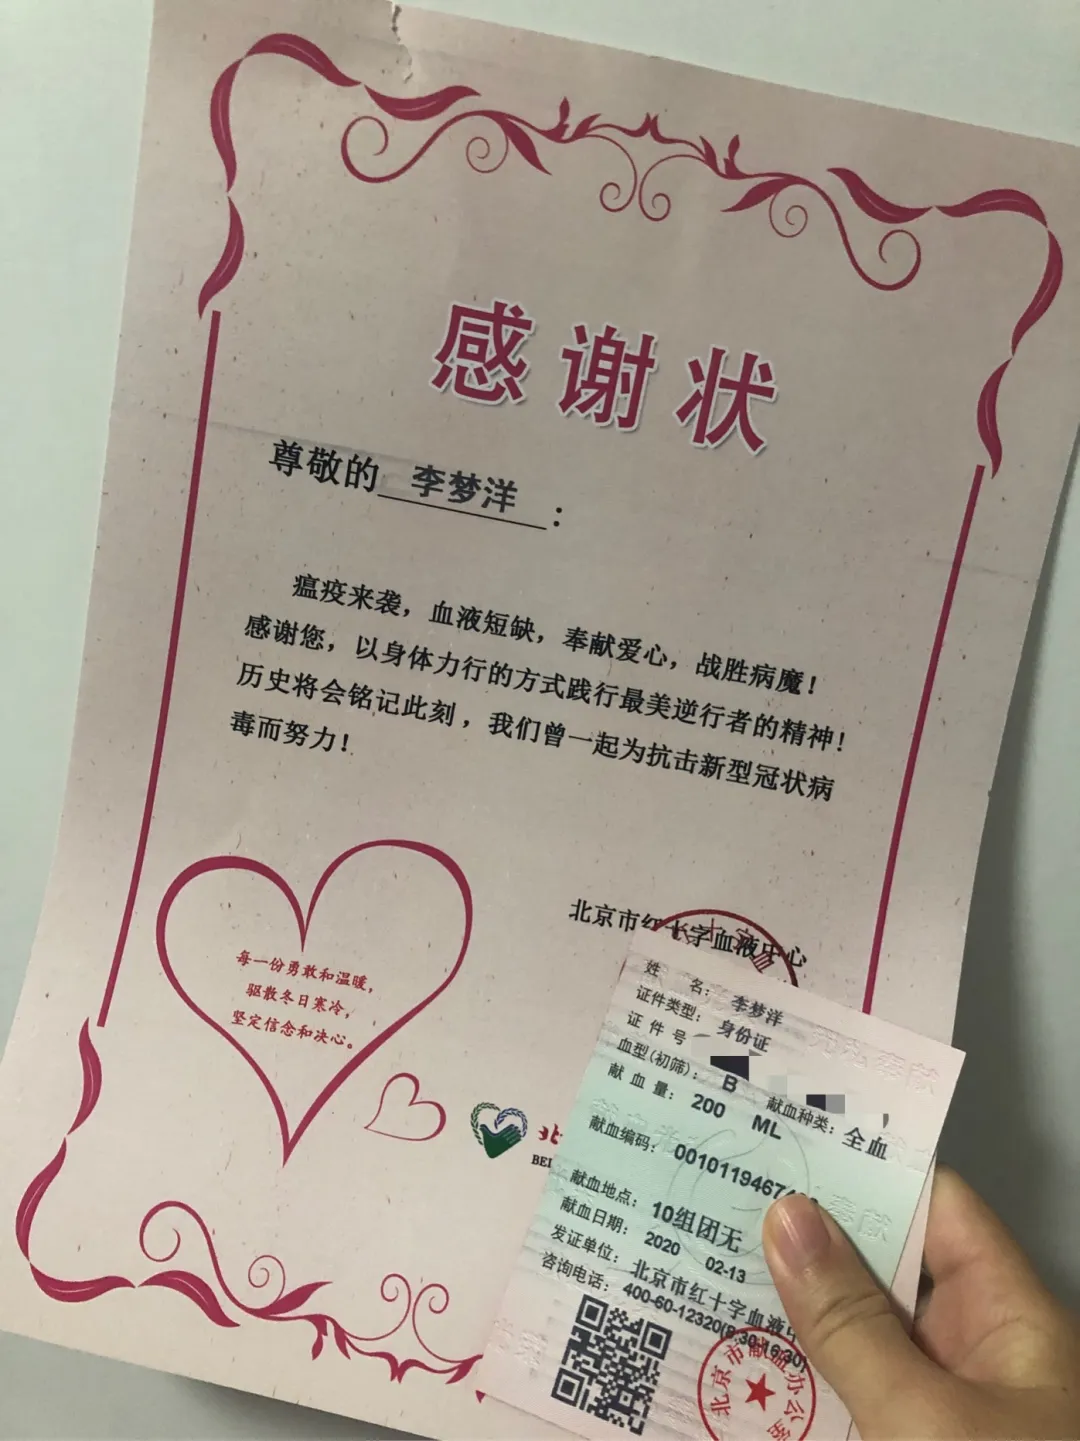 感谢状
尊敬的 李梦洋 ：
瘟疫来袭，血液短缺，奉献爱心，战胜病魔！
感谢您，以身体力行的方式践行最美逆行者的精神！
历史将会铭记此刻，我们曾一起为抗击新型冠状病
毒而努力！
北京市红十字血液中心
每一份勇敢和温暖，
驱散冬日寒冷，
坚定信念和决心。
北
BEI
姓 名： 李梦洋
证件类型： 身份证
证 件 号
血型(初筛)： B 献血种类： 全血
献 血 量： 200 ML
献血编码： 0010119467
献血地点： 10组团无
献血日期： 2020 02-13
发证单位： 北京市红十字血液中
咨询电话： 400-60-12320(8:30-16:30)
北京市献血办公